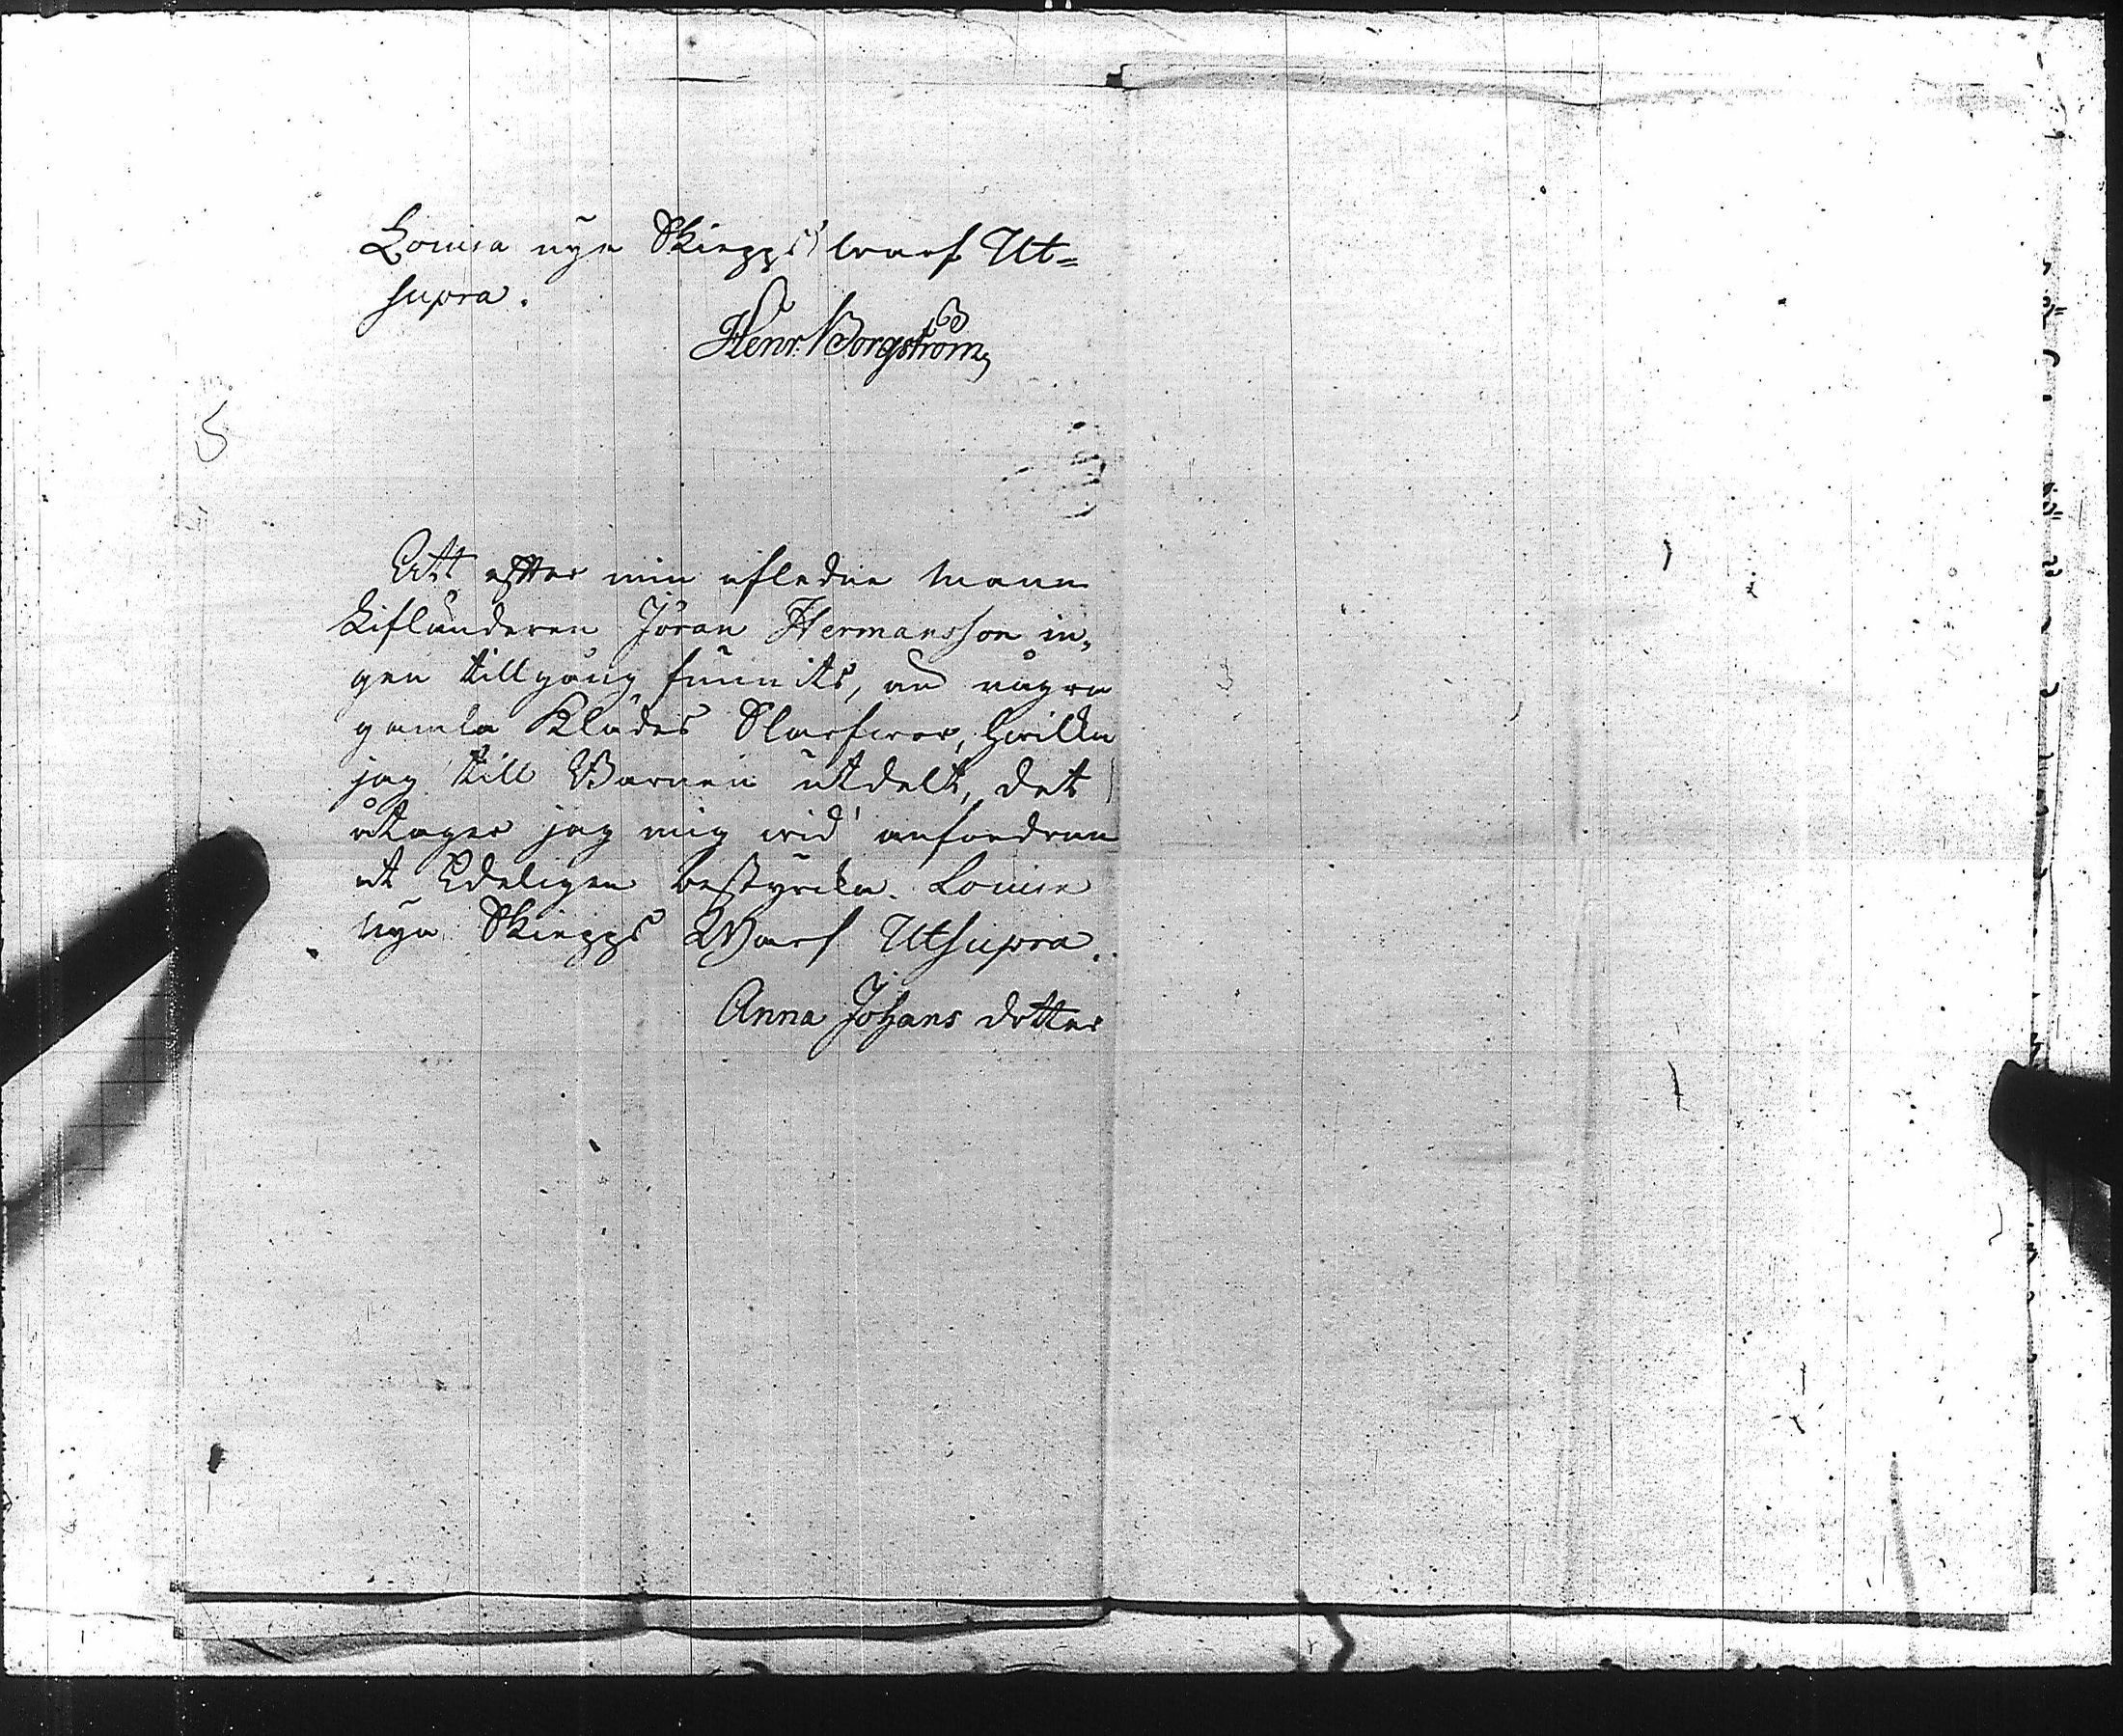 Lovisa nya Skiepps warf Ut=
supra.
Henr. Borgström
Att efter min afledne Mann
Lifländeren Jöran Hermansson in,
gen tillgång funnits, än några
gamla Kläder Slarfwor, hwilka
jag till Barnen utdelt, det
åtager jag mig wid anfordran
at Edeligen bestyrcka. Lovisa
nya Skiepps Warf Utsupra.
Anna Johans dotter